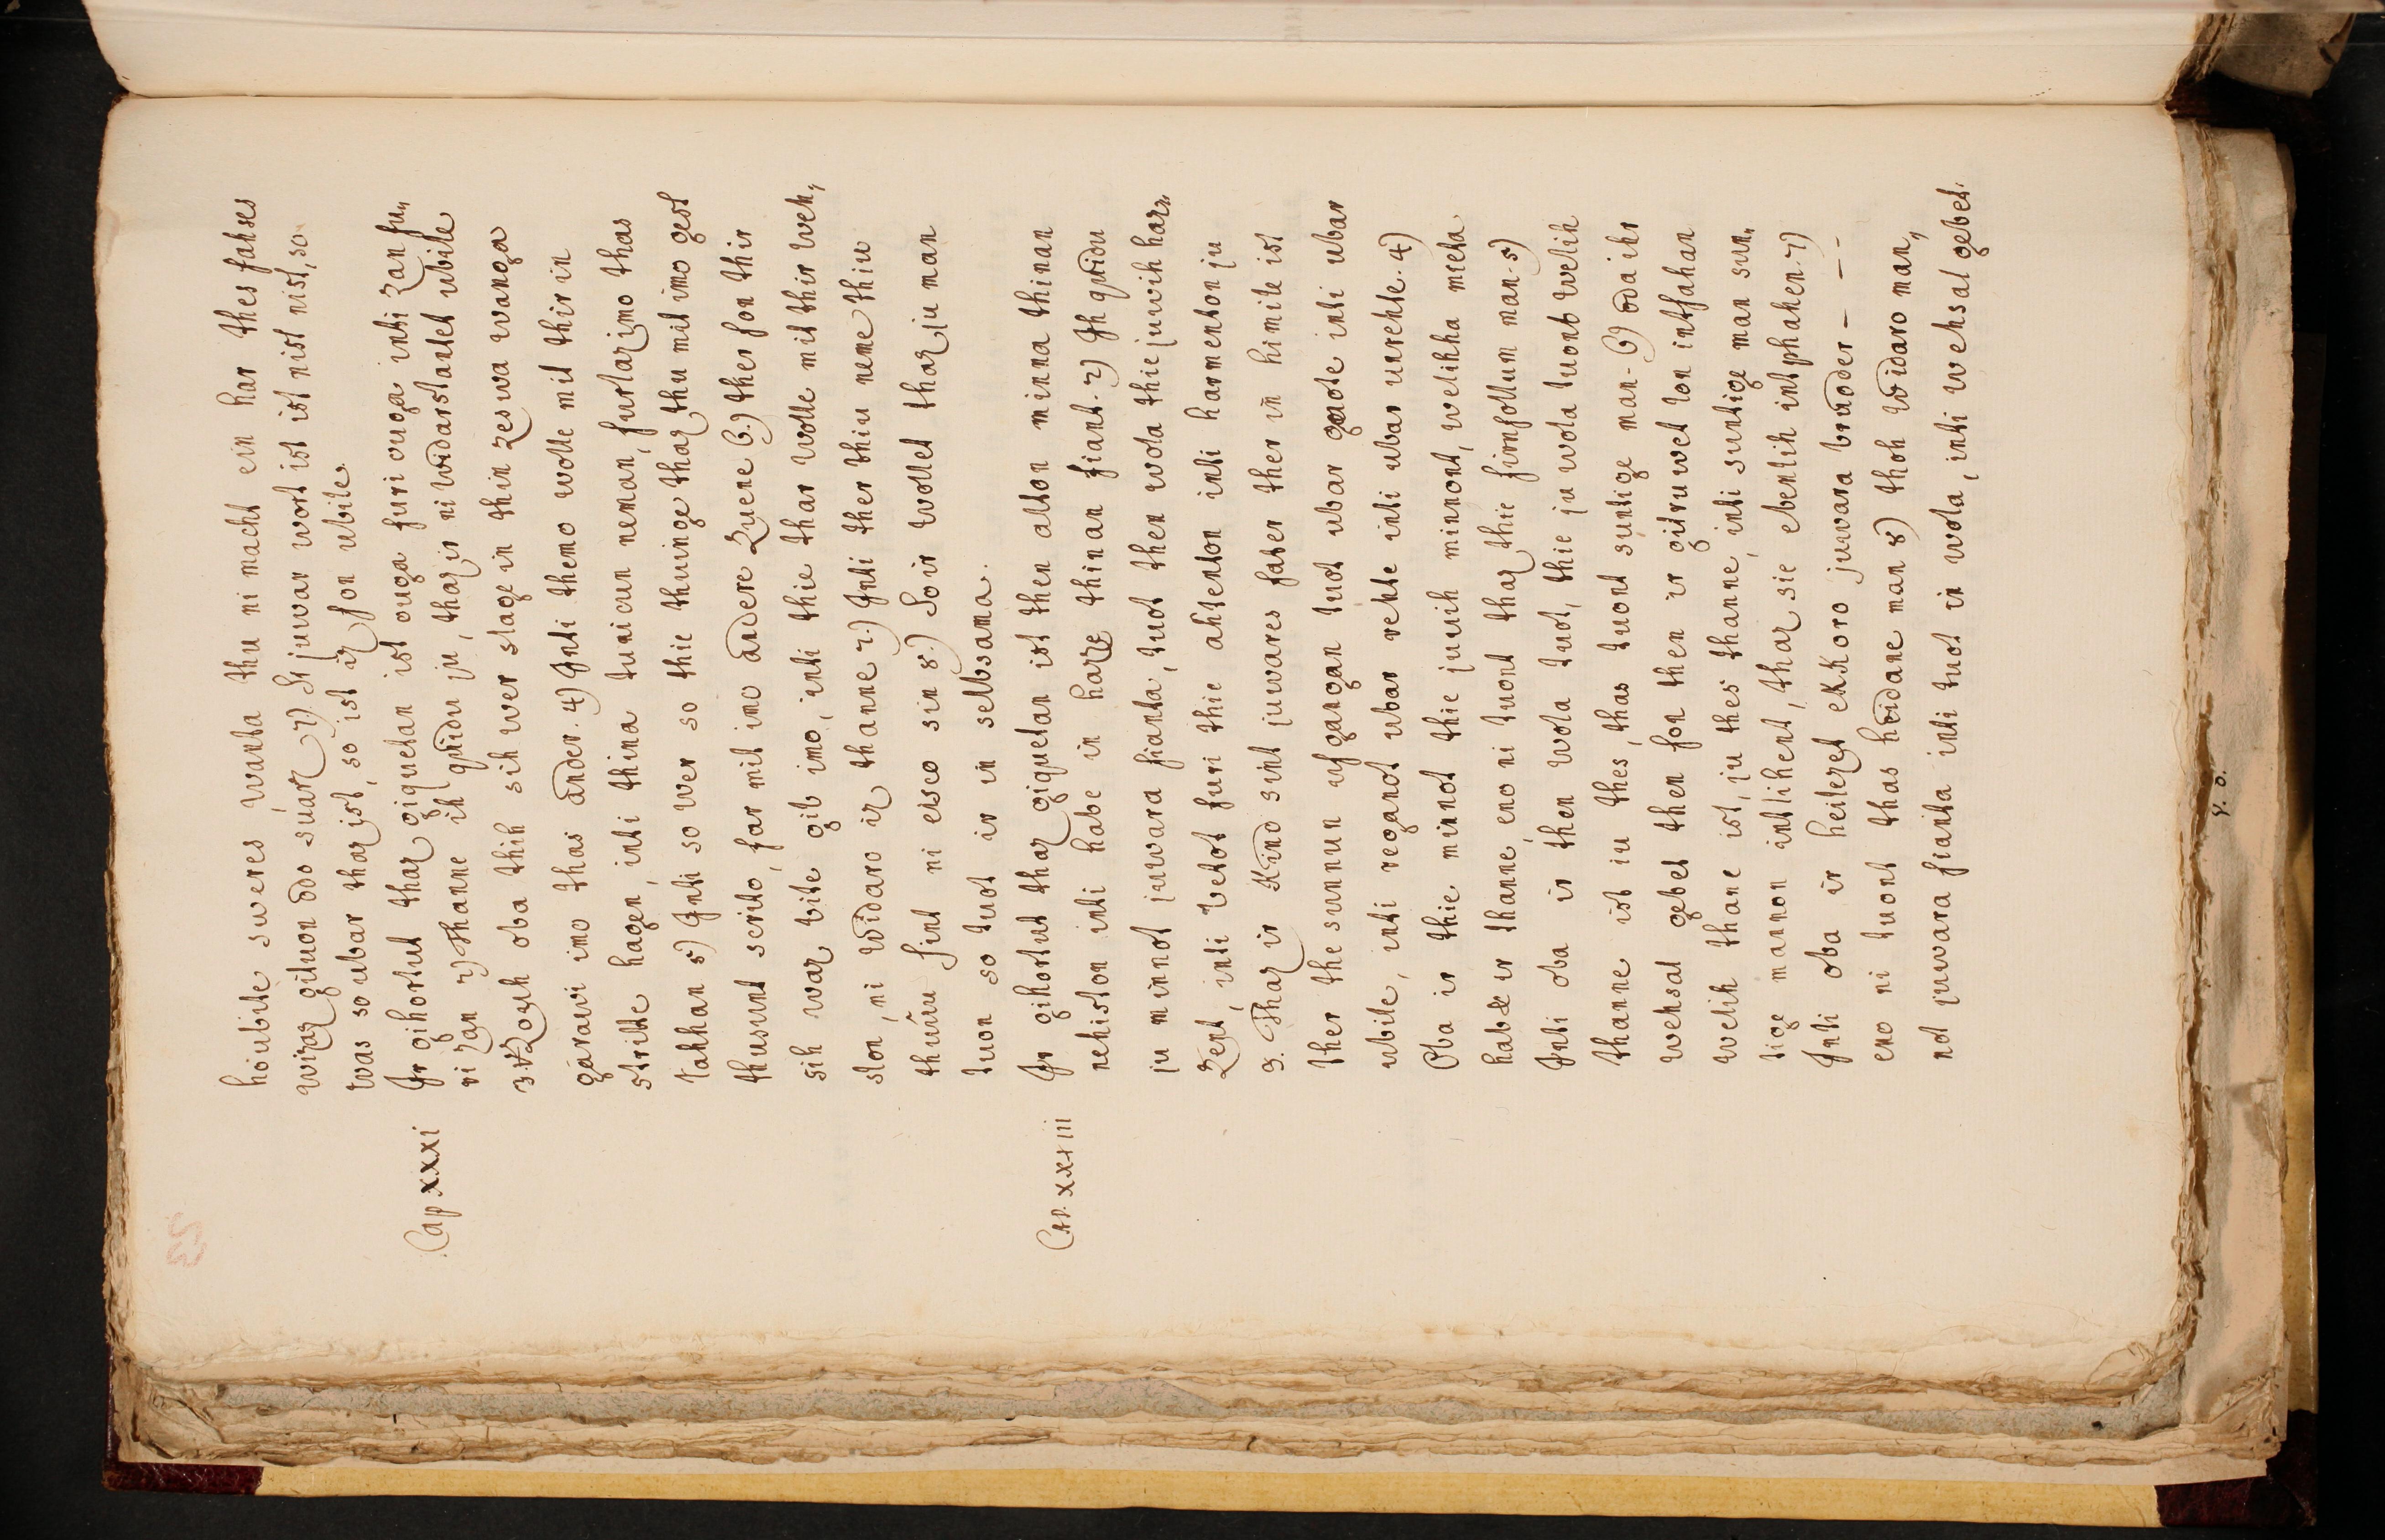 25
houbite sweres, wanta thu ni macht ein har thes fahses
wizaz gituon odo suarz 7) Si juwar wort ist ist nist nist, so
was so ubar thaz ist, so ist iz fon ubile.
Cap xxxi Ir gihortut thaz giquetan ist ouga furi ouga inti zan fu„
ri zan 2) Thanne ih quidu ju, thaz ir ni widarstantet ubile
3 Zouh oba thih sih wer slage in thin zeswa wanga
garawi imo thas ander. 4) Inti themo wolle mit thir in
stritte hagen, inti thina tunicun neman, furlaz imo thas
Lahhan 5) Inti so wer so thie thuinge thaz thu mit imo gest
thusunt scrito, far mit imo andere Zuene 6.) ther fon thir
sih waz bite gib imo, inti thie thar wolle mit thir weh„
slon, ni widaro iz thanne 7.) Inti ther thiu neme thiu
thiu sint ni eisco sin 8.) So ir wollet thaz ju man
tuon so tuot ir in selbsama.
Cap. xxxiii Ir gihortut thaz giquetan ist then alton minna thinan
nehiston inti habe in hazze thinan fiant. 2) Ih quidu
ju minnot juwara fianta, tuot then wola thie juwih haz„
Zent, inti betot furi thie ahtenton inti harmenton ju
3. Thaz ir Kind sint juwares fater ther in himile ist
ther the sunnun ufgangan tuot ubar guote inti ubar
ubile, inti reganot ubar rehte inti ubar unrehte. 4)
Oba ir thie minnot thie juuih minnont, welihha mieta
hab& ir thanne, eno ni tuont thaz thie firnfollum man. 5)
Inti oba ir then wola tuot, thie ju wola tuont welih
thanne ist iu thes, thas tuont suntige man. 6) oda ihr
wehsal gebet then fon then ir gitruwet lon intfahan
welih thanc ist, ju thes thanne, inti suntige man sun„
tige mannon intlihent, thaz sie ebenlih intphahen. 7)
Inti oba ir heilezet ekkoro juwara bruoder – – –
eno ni tuont thas heidane man 8) thoh widaro man„
not juwara fianta inti tuot in wola, inti wehsal gebet.